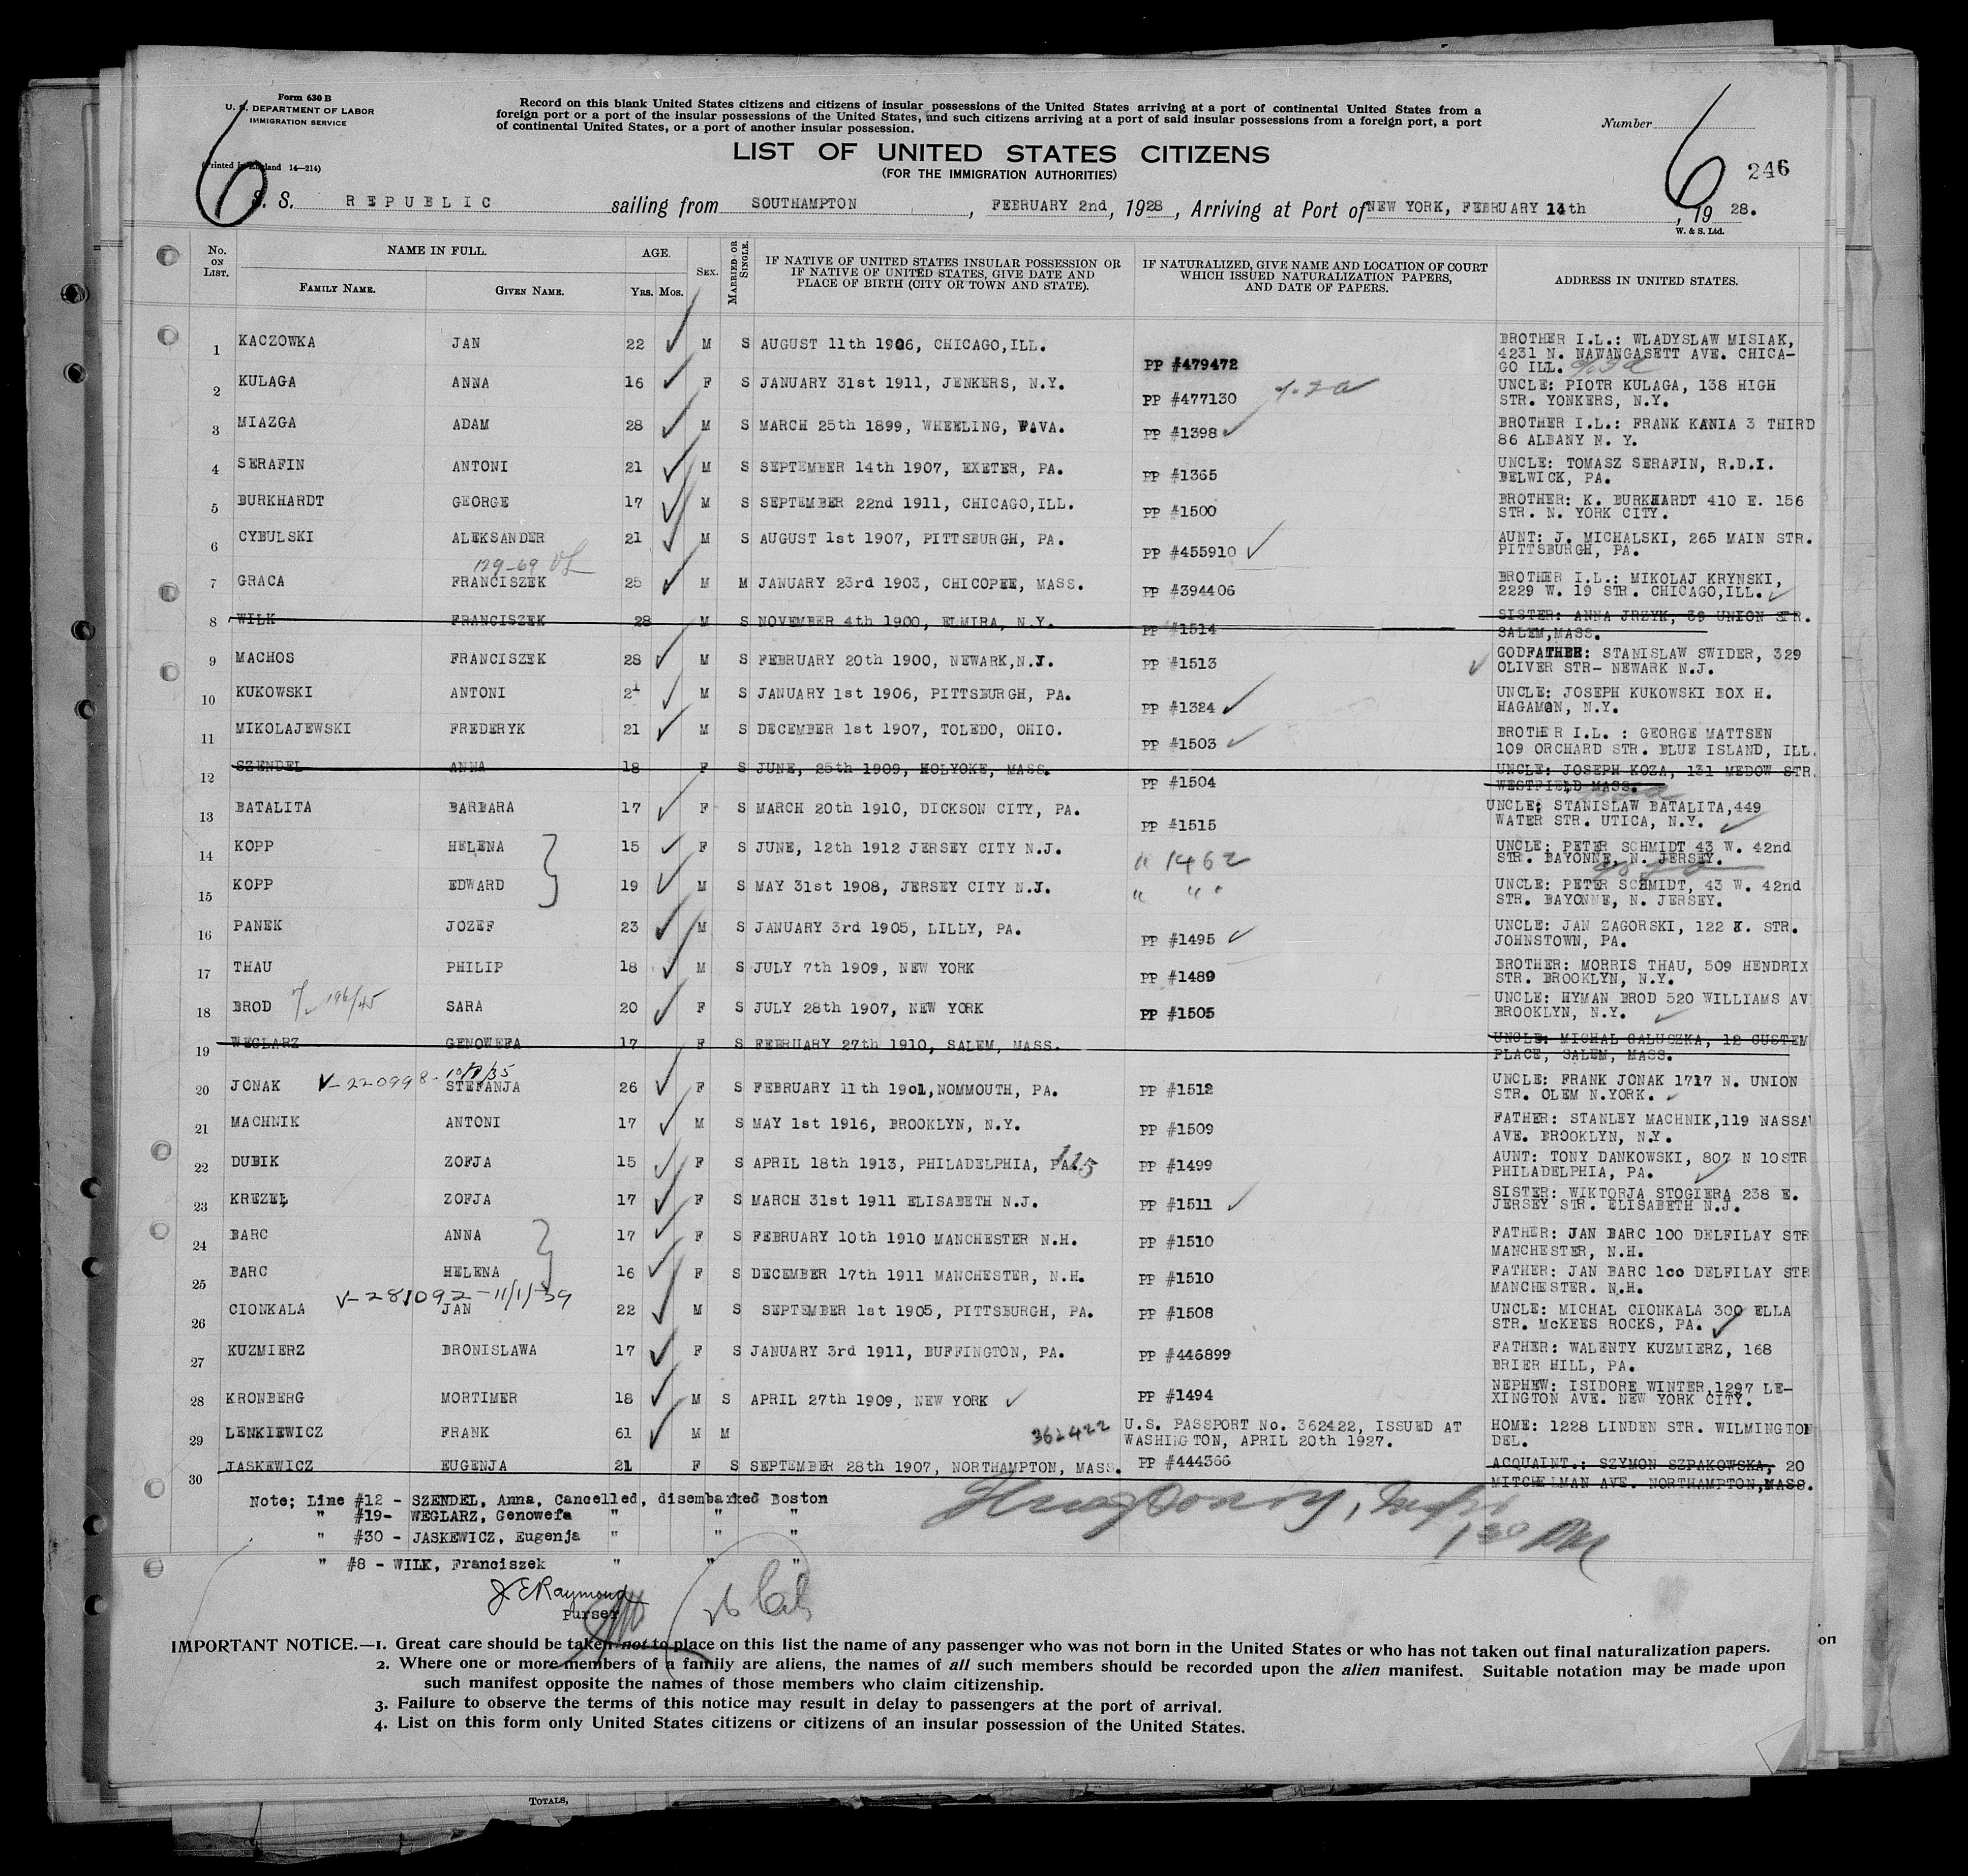 Form 630 B
U. S. DEPARTMENT OF LABOR
IMMIGRATION SERVICE
(Printed in England 14—214)
6
Record on this blank United States citizens and citizens of insular possessions of the United States arriving at a port of continental United States from a
foreign port or a port of the insular possessions of the United States, and such citizens arriving at a port of said insular possessions from a foreign port, a port
of continental United States, or a port of another insular possession.
Number
6
246
LIST OF UNITED STATES CITIZENS
(FOR THE IMMIGRATION AUTHORITIES)
S. S. REPUBLIC sailing from SOUTHAMPTON, FEBRUARY 2nd, 1928, Arriving at Port of NEW YORK, FEBRUARY 14th, 1928.
W. & S. Ltd.
No. ON LIST. NAME IN FULL. FAMILY NAME. GIVEN NAME. AGE. YRS. MOS. SEX. MARRIED OR SINGLE. IF NATIVE OF UNITED STATES INSULAR POSSESSION OR IF NATIVE OF UNITED STATES, GIVE DATE AND PLACE OF BIRTH (CITY OR TOWN AND STATE). IF NATURALIZED, GIVE NAME AND LOCATION OF COURT WHICH ISSUED NATURALIZATION PAPERS, AND DATE OF PAPERS. ADDRESS IN UNITED STATES.
1 KACZOWKA JAN 22 M S AUGUST 11th 1906, CHICAGO,ILL. PP #479472 BROTHER I.L.: WLADYSLAW MISIAK,
4231 N. NAWANGASETT AVE. CHICA-
GO ILL.
2 KULAGA ANNA 16 F S JANUARY 31st 1911, JENKERS, N.Y. PP #477130 UNCLE: PIOTR KULAGA, 138 HIGH
STR. YONKERS, N.Y.
3 MIAZGA ADAM 28 M S MARCH 25th 1899, WHEELING, W.VA. PP #1398 BROTHER I.L.: FRANK KANIA 3 THIRD
86 ALBANY N. Y.
4 SERAFIN ANTONI 21 M S SEPTEMBER 14th 1907, EXETER, PA. PP #1365 UNCLE: TOMASZ SERAFIN, R.D.I.
BELWICK, PA.
5 BURKHARDT GEORGE 17 M S SEPTEMBER 22nd 1911, CHICAGO,ILL. PP #1500 BROTHER: K. BURKHARDT 410 E. 156
STR. N. YORK CITY.
6 CYBULSKI ALEKSANDER 21 M S AUGUST 1st 1907, PITTSBURGH, PA. PP #455910 AUNT: J. MICHALSKI, 265 MAIN STR.
PITTSBURGH, PA.
129-69
7 GRACA FRANCISZEK 25 M M JANUARY 23rd 1903, CHICOPEE, MASS. PP #394406 BROTHER I.L.: MIKOLAJ KRYNSKI,
2229 W. 19 STR. CHICAGO,ILL.
8 WILK FRANCISZEK 28 M S NOVEMBER 4th 1900, ELMIRA, N.Y. PP #1514 SISTER: ANNA JRZYK, 39 UNION STR.
SALEM,MASS.
9 MACHOS FRANCISZEK 28 M S FEBRUARY 20th 1900, NEWARK,N.J. PP #1513 GODFATHER: STANISLAW SWIDER, 329
OLIVER STR- NEWARK N.J.
10 KUKOWSKI ANTONI 21 M S JANUARY 1st 1906, PITTSBURGH, PA. PP #1324 UNCLE: JOSEPH KUKOWSKI BOX H.
HAGAMON, N.Y.
11 MIKOLAJEWSKI FREDERYK 21 M S DECEMBER 1st 1907, TOLEDO, OHIO. PP #1503 BROTHER I.L. : GEORGE MATTSEN
109 ORCHARD STR. BLUE ISLAND, ILL.
12 SZENDEL ANNA 18 F S JUNE, 25th 1909, HOLYOKE, MASS. PP #1504 UNCLE: JOSEPH KOZA, 131 MEDOW STR.
WESTFIELD MASS.
13 BATALITA BARBARA 17 F S MARCH 20th 1910, DICKSON CITY, PA. PP #1515 UNCLE: STANISLAW BATALITA,449
WATER STR. UTICA, N.Y.
14 KOPP HELENA 15 F S JUNE, 12th 1912 JERSEY CITY N.J. " 1462 UNCLE: PETER SCHMIDT 43 W. 42nd
STR. BAYONNE, N. JERSEY.
15 KOPP EDWARD 19 M S MAY 31st 1908, JERSEY CITY N.J. " " UNCLE: PETER SCHMIDT, 43 W. 42nd
STR. BAYONNE, N. JERSEY.
16 PANEK JOZEF 23 M S JANUARY 3rd 1905, LILLY, PA. PP #1495 UNCLE: JAN ZAGORSKI, 122 STR.
JOHNSTOWN, PA.
17 THAU PHILIP 18 M S JULY 7th 1909, NEW YORK PP #1489 BROTHER: MORRIS THAU, 509 HENDRIX
STR. BROOKLYN, N.Y.
18 BROD SARA 20 F S JULY 28th 1907, NEW YORK PP #1505 UNCLE: HYMAN BROD 520 WILLIAMS AV
BROOKLYN, N.Y.
19 WEGLARZ GENOWEFA 17 F S FEBRUARY 27th 1910, SALEM, MASS. UNCLE: MICHAL GALUSZKA, 12 CUSTEM
PLACE, SALEM, MASS.
V-220998- 10/9/35
20 JONAK STEFANJA 26 F S FEBRUARY 11th 1901,NOMMOUTH, PA. PP #1512 UNCLE: FRANK JONAK 1717 N. UNION
STR. OLEM N.YORK.
21 MACHNIK ANTONI 17 M S MAY 1st 1916, BROOKLYN, N.Y. PP #1509 FATHER: STANLEY MACHNIK,119 NASSA
AVE. BROOKLYN, N.Y.
22 DUBIK ZOFJA 15 F S APRIL 18th 1913, PHILADELPHIA, PA. 115 PP #1499 AUNT: TONY DANKOWSKI, 807 N 10STR
PHILADELPHIA, PA.
23 KREZEL ZOFJA 17 F S MARCH 31st 1911 ELISABETH N.J. PP #1511 SISTER: WIKTORJA STOGIERA 238 E.
JERSEY STR. ELISABETH N.J.
24 BARC ANNA 17 F S FEBRUARY 10th 1910 MANCHESTER N.H. PP #1510 FATHER: JAN BARC 100 DELFILAY STR
MANCHESTER, N.H.
25 BARC HELENA 16 F S DECEMBER 17th 1911 MANCHESTER, N.H. PP #1510 FATHER: JAN BARC 100 DELFILAY STR
MANCHESTER. N.H.
V-281092-11/1/39
26 CIONKALA JAN 22 M S SEPTEMBER 1st 1905, PITTSBURGH, PA. PP #1508 UNCLE: MICHAL CIONKALA 300 ELLA
STR. McKEES ROCKS, PA.
27 KUZMIERZ BRONISLAWA 17 F S JANUARY 3rd 1911, BUFFINGTON, PA. PP #446899 FATHER: WALENTY KUZMIERZ, 168
BRIER HILL, PA.
28 KRONBERG MORTIMER 18 M S APRIL 27th 1909, NEW YORK PP #1494 NEPHEW: ISIDORE WINTER,1297 LE-
XINGTON AVE. NEW YORK CITY.
29 LENKIEWICZ FRANK 61 M M 362422 U.S. PASSPORT No. 362422, ISSUED AT
WASHINGTON, APRIL 20th 1927. HOME: 1228 LINDEN STR. WILMINGTON
DEL.
30 JASKEWICZ EUGENJA 21 F S SEPTEMBER 28th 1907, NORTHAMPTON, MASS. PP #444366 ACQUAINT.: SZYMON SZPAKOWSKA, 20
MITCHELMAN AVE. NORTHAMPTON,MASS.
Note; Line #12 - SZENDEL, Anna, Cancelled, disembarked Boston
" #19- WEGLARZ, Genowefa " " "
" #30 - JASKEWICZ, Eugenja " " "
" #8 - WILK, Franciszek " " "
J E Raymond
Purser
IMPORTANT NOTICE.—1. Great care should be taken not to place on this list the name of any passenger who was not born in the United States or who has not taken out final naturalization papers.
2. Where one or more members of a family are aliens, the names of all such members should be recorded upon the alien manifest. Suitable notation may be made upon
such manifest opposite the names of those members who claim citizenship.
3. Failure to observe the terms of this notice may result in delay to passengers at the port of arrival.
4. List on this form only United States citizens or citizens of an insular possession of the United States.
on
TOTALS,